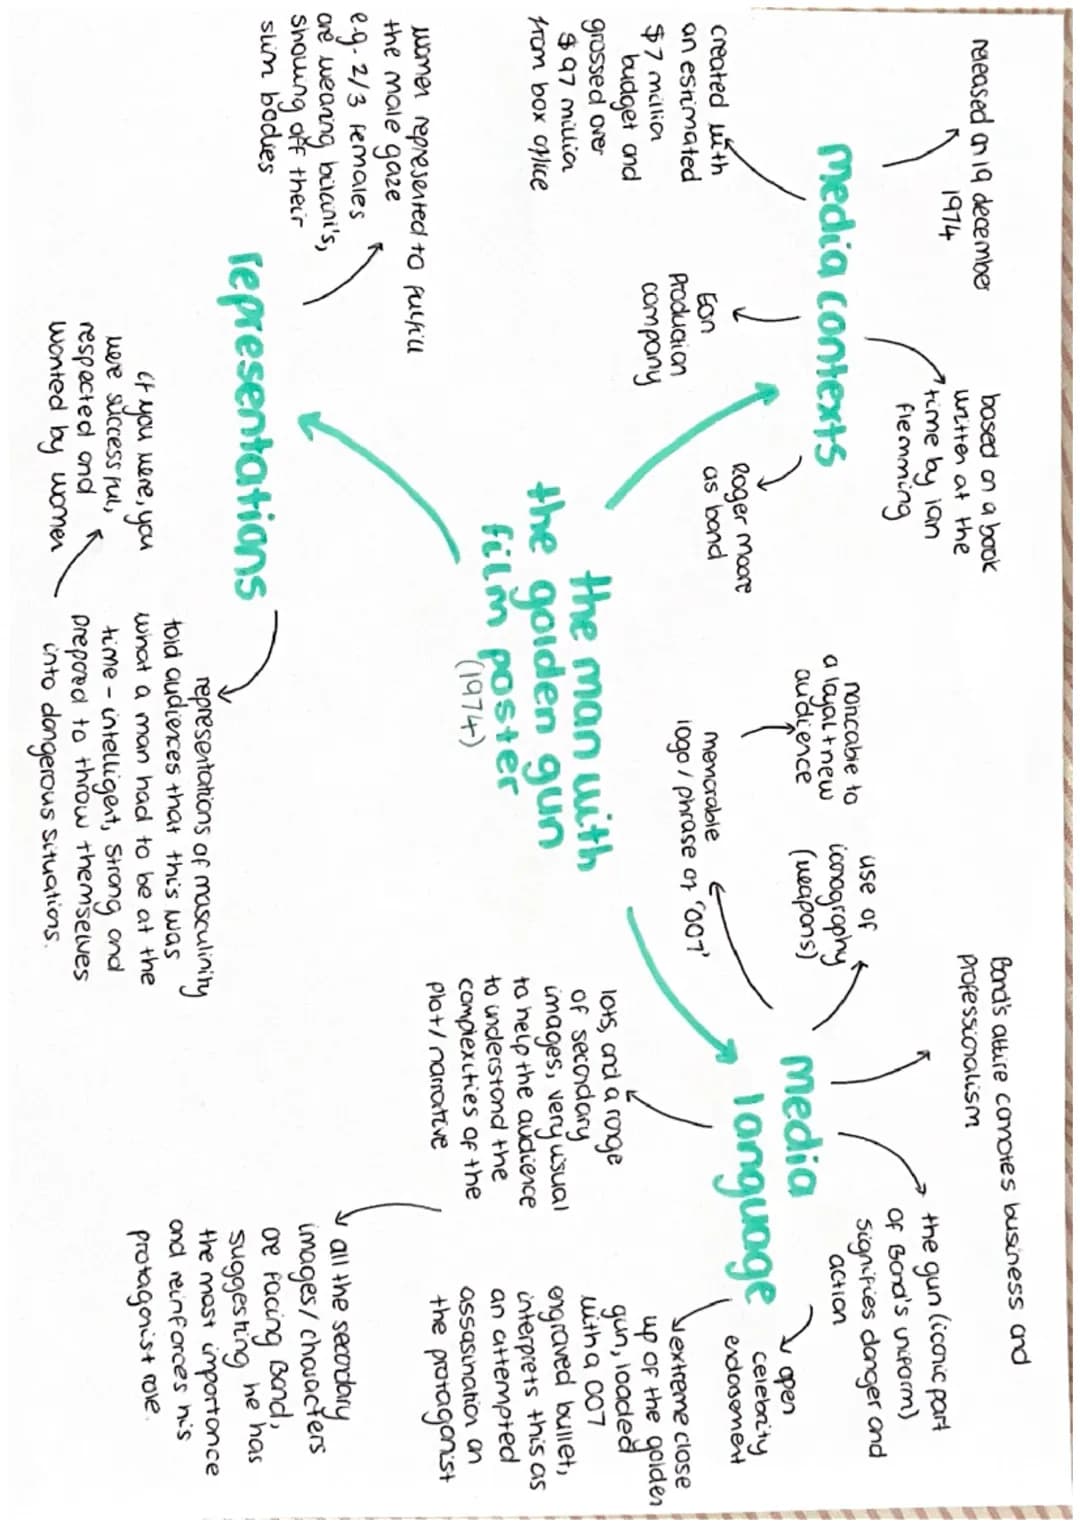 the man with
the golden gun
film poster
(1974)
media contexts
released on 19 december
1974
based on a book
written at the
time by ian
flemming
created with
an estimated
$7 million
budget and
grossed over
$97 million
from box office
Eon
Production
company
Roger moore
as bond
media
language
Bond's attire conotes business and
professionalism
the gun (iconic part
of Bond's uniform)
signifies danger and
action
use of
iconography
(weapons)
noticable to
a loyal + new
audience
memorable
logo / phrase of '007'
open
celebrity
endosement
extreme close
up of the golden
gun, loaded
with a 007
engraved bullet,
interprets this as
an attempted
assasination on
the protagonist
lots, and a range
of secondary
images, very usual
to help the audience
to understand the
complexities of the
plot / narrative
all the secondary
images/ characters
are facing Bond,
suggesting he has
the most importance
and reinforces his
protagonist role.
representations
women represented to fulfill
the male gaze
e.g. 2/3 females
are wearing bikini's,
showing off their
slim bodies
representations of masculinity
told audiences that this was
what a man had to be at the
time - intelligent, strong and
prepared to throw themselves
into dangerous situations.
if you were, you
were successful,
respected and
wanted by women